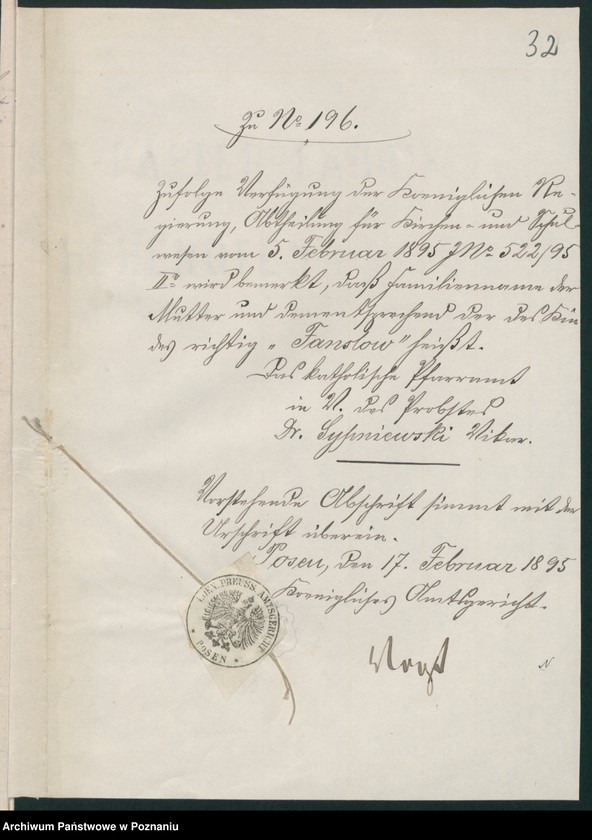 32
Zu No 196.
Zufolge Verfügung der Koeniglichen Re-
gierung, Abtheilung für Kirchen- und Schul-
wesen vom 5. Februar 1895 J No 522/95
II wird bemerkt, daß Familienname der
Mutter und dementsprechend der des Kin
des richtig „Fanslow" heißt.
Das katholische Pfarramt
in V. des Probstes
Dr. Sypniewski Vikar.
Vorstehende Abschrift stimmt mit der
Urschrift überein.
Posen, den 17. Februar 1895
Koenigliches Amtsgericht.
KOEN. PREUSS. AMTSGERICHT
* POSEN *
Vogt
Archiwum Państwowe w Poznaniu